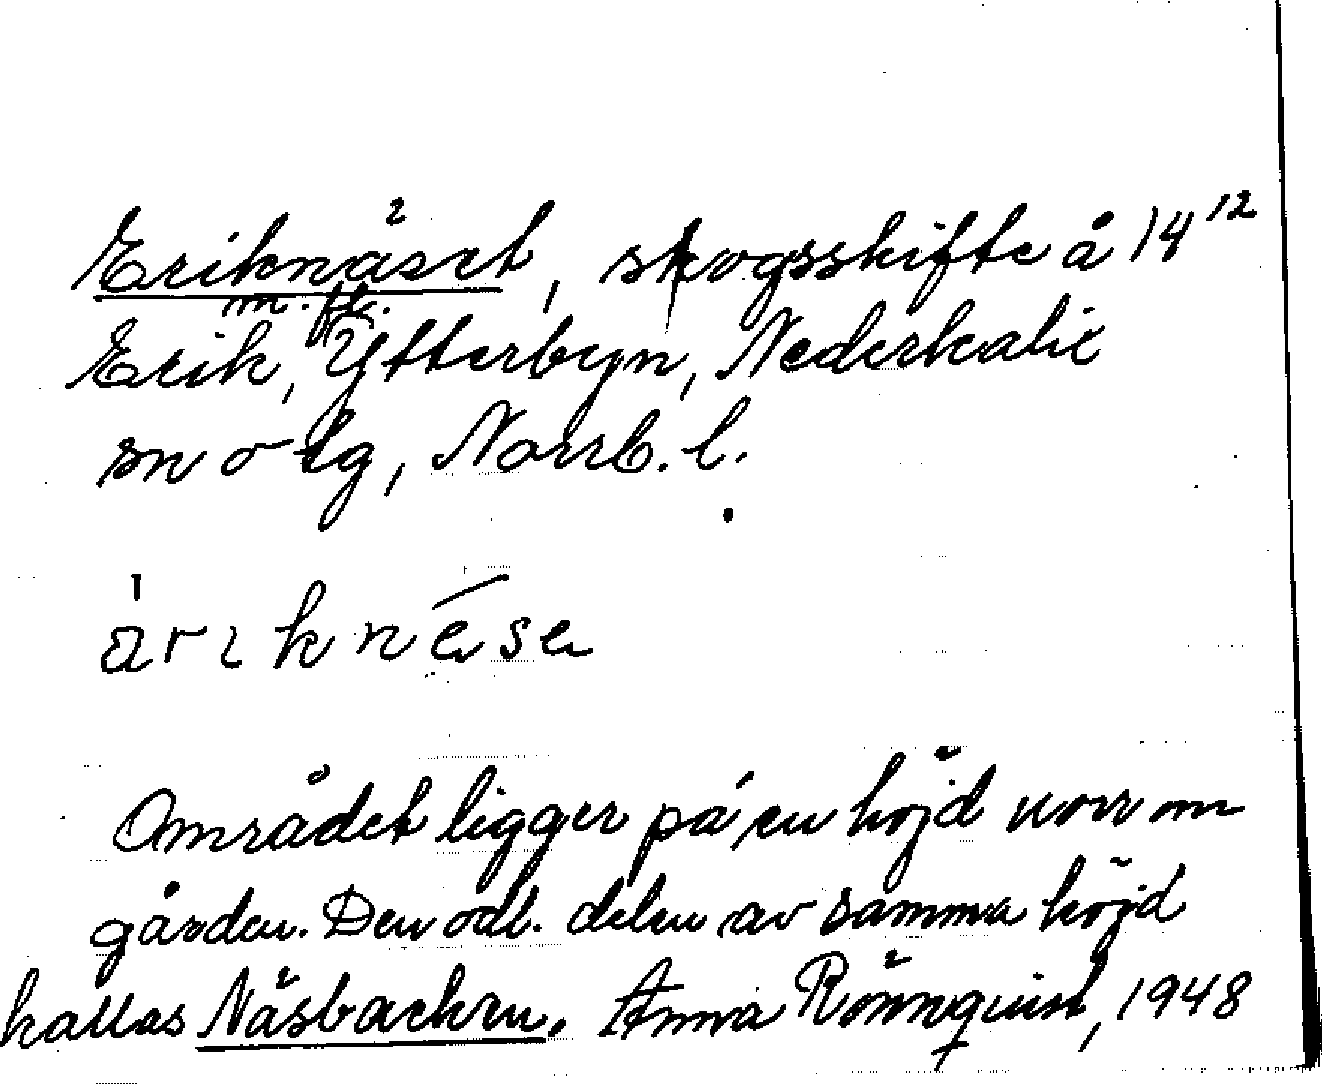 Eriknäset, skogsskifte å 14¹²
m. fl.
Erik, Ytterbyn, Nederkalix
sn o tg, Norrb. l.
Området ligger på en höjd norr om
gården. Den odl. delen av samma höjd
kallas Näsbacken. Anna Rönnquist, 1948